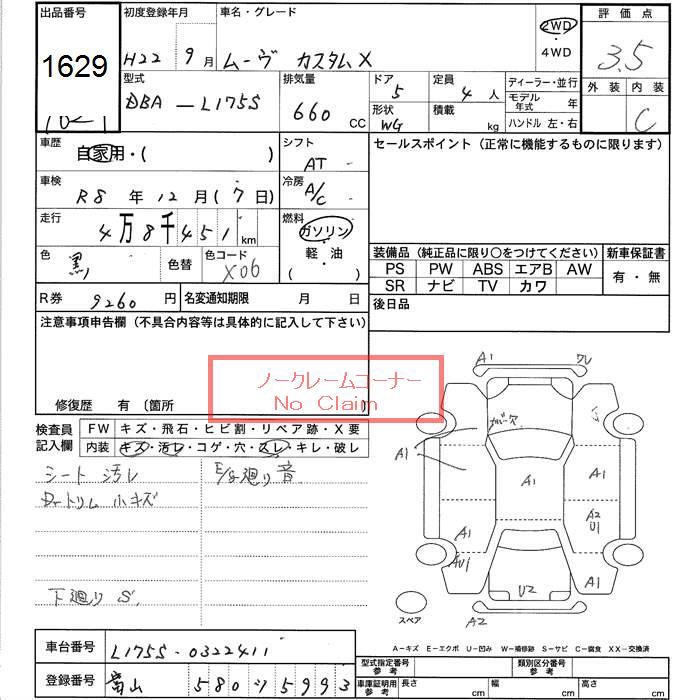 出品番号 初度登録年月 車名・グレード 評価点
1629 H22 9月 ムーヴ カスタムX 2WD・4WD 3.5
10-1
型式 排気量 ドア 定員 ディーラー・並行 外装 内装
DBA-L175S 660 CC 5 4 人 モデル年式 年 C
形状 積載
WG kg ハンドル 左・右
車歴 自家用・( ) シフト AT セールスポイント(正常に機能するものに限ります)
車検 R8年12月(7日) 冷房 A/C
走行 4万8千451km 燃料 ガソリン・軽油( )
色 黒 色替 色コード X06
装備品(純正品に限り○をつけてください) 新車保証書
PS PW ABS エアB AW 有・無
SR ナビ TV カワ
R券 9260円 名変通知期限 月 日 後日品
注意事項申告欄(不具合内容等は具体的に記入して下さい)
ノークレームコーナー
No Claim
修復歴 有 〔箇所 〕
検査員記入欄 FW キズ・飛石・ヒビ割・リペア跡・X要
内装 キズ・汚レ・コゲ・穴・スレ・キレ・破レ
シート汚レ E/g廻り音
Dトリム小キズ
下廻りS
A1 ワレ
A1
A1 A1
A1 A2
U1
AU1 A1
U2
スペア A2
A-キズ E-エクボ U-凹み W-補修跡 S-サビ C-腐食 XX-交換済
車台番号 L175S-0322411
登録番号 富山 580 ツ 5993
型式指定番号 参考 類別区分番号 参考
車庫証明用 参考 長さ cm 幅 cm 高さ cm